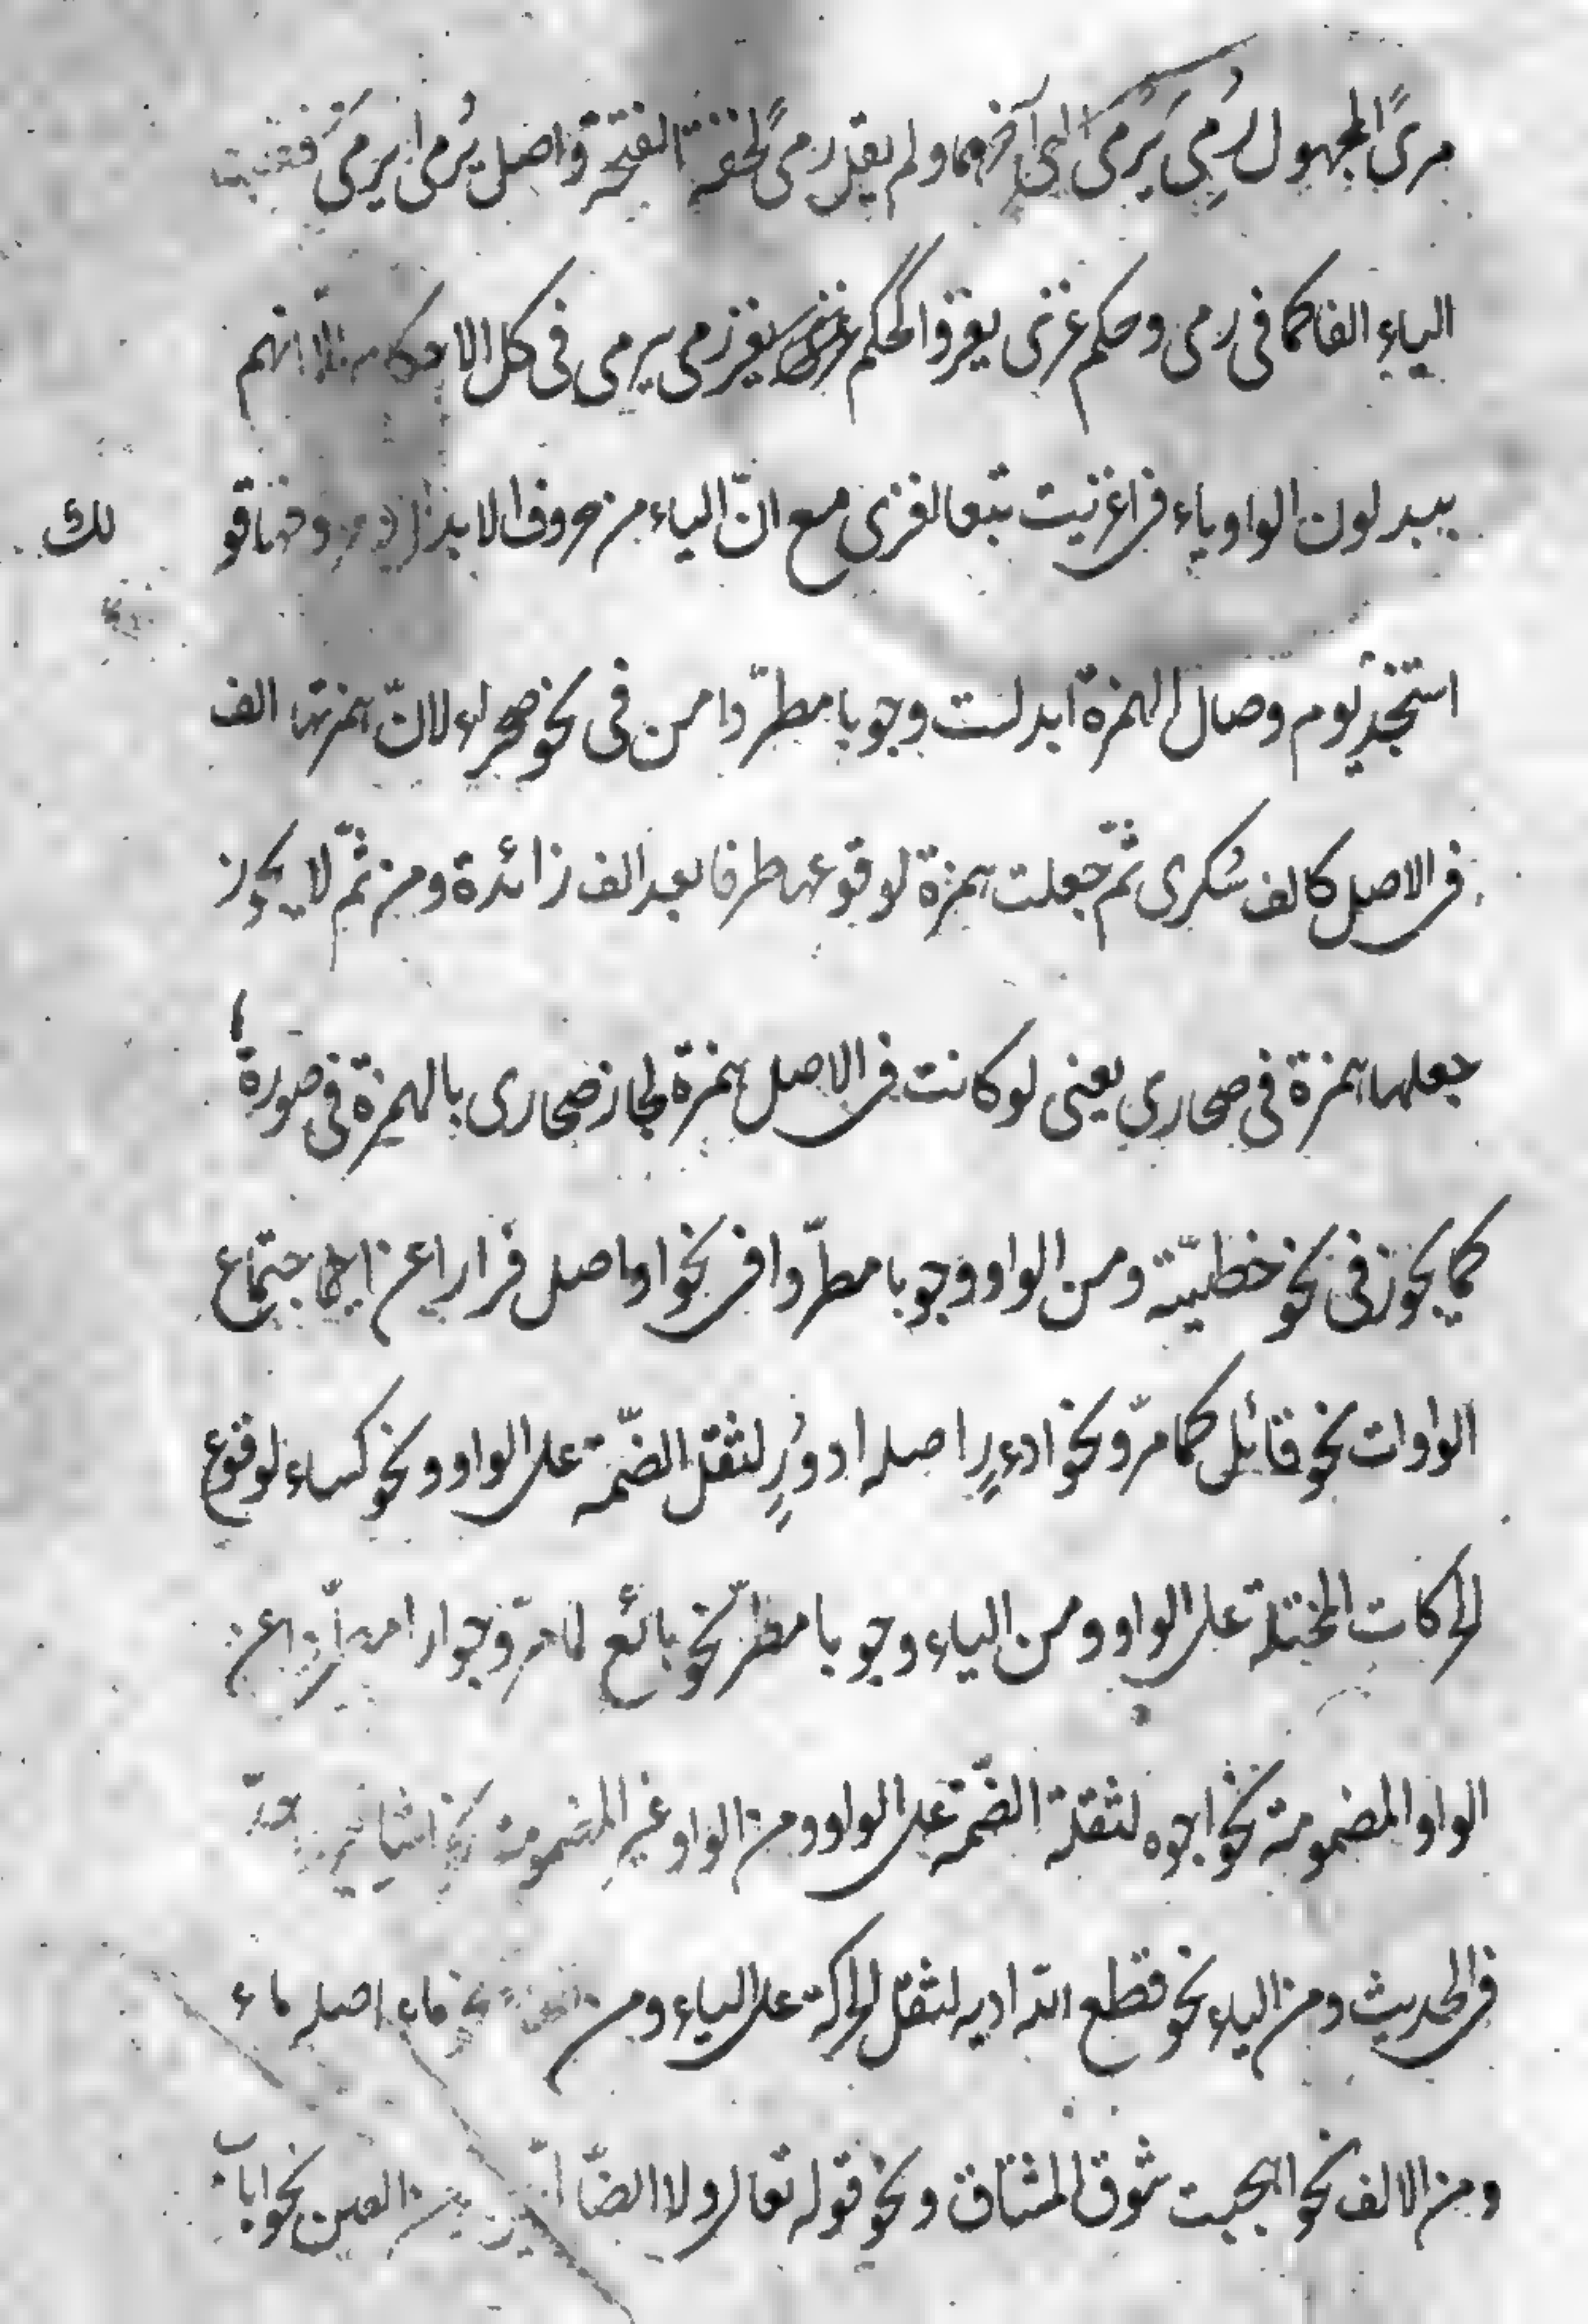 مرىً المجهول رُمِى يُرمَى الى آخرهما ولم يقل رمىً لخفة الفتحة واصل يُرمى يرمىُ فقلبت
الياء الفا كما فى رمى وحكم غزى يغزو كحكم رمى يرمى فى كل الاحكام الّا انهم
يبدلون الواو ياء فى اغزيت تبعا لغزى مع انّ الياء من حروف الابدال وحروفها قو لك
استنجد يوم وصال الهمزة ابدلت وجوبا مطرّدا من فى نحو صحراء لانّ همزتها الف
فى الاصل كالف سُكرى ثمّ جعلت همزة لوقوعها طرفا بعد الف زائدة ومن ثمّ لا يجوز
جعلها همزة فى صحارى يعنى لو كانت فى الاصل همزة لجاز صحارى بالهمزة فى صورة
كما يجوز فى نحو خطيّة ومن الواو وجوبا مطرّدا فى نحو اواصل فرارا عن اجتماع
الواوات نحو قائل كما مرّ ونحو ادءرٍ اصله ادورٍ لثقل الضّمة على الواو ونحو كساء لوقوع
الحركات المختلة على الواو ومن الياء وجوبا مطرّ نحو بائع لما مرّ وجوارا من عن
الواو المضمومة نحو اجوه لثقلة الضّمة على الواو ومن الواو غير المضمومة نحو
فى الحديث ومن الياء نحو قطع الله اديه لثقل الحركة على الياء ومن نحو ماء اصله ماء
ومن الالف نحو هيجت شوق المشتاق ونحو قوله تعالى ولا الضّا العين نحو اباب